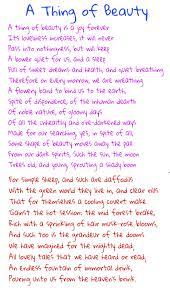 A Thing of Beauty
A thing of beauty is a joy forever
Its loveliness increases, it will never
Pass into nothingness, but will keep
A bower quiet for us, and a sleep
Full of sweet dreams and health, and quiet breathing
Therefore on every morrow, we are wreathing
A flowery band to bind us to the earth,
Spite of despondence, of the inhuman dearth
Of noble nature, of gloomy days
Of all the unhealthy and o'er-darkened ways
Made for our searching, yes, in spite of all,
Some shape of beauty moves away the pall
From our dark spirits, Such the sun, the moon
Trees old, and young, sprouting a shady boon
For simple sheep, and such are daffodils
With the green world they live in, and clear rills
That for themselves a cooling covert make
'Gainst the hot season, the mid forest brake,
Rich with a sprinkling of fair musk-rose blooms,
And such too is the grandeur of the dooms
We have imagined for the mighty dead,
All lovely tales that we have heard or read,
An endless fountain of immortal drink,
Pouring unto us from the heaven's brink.